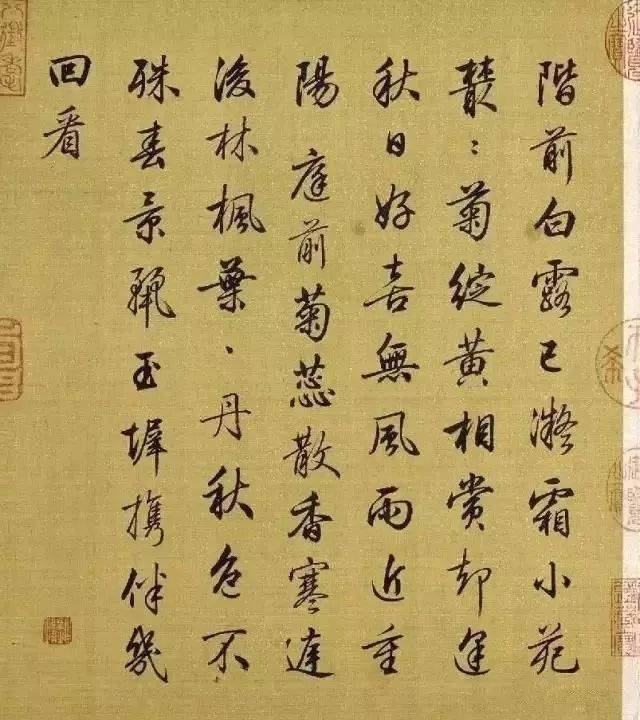 階前白露已凝霜小苑
叢〻菊綻黃相賞却逢
秋日好喜無風雨近重
陽 庭前菊蕊散香寒遶
後林楓葉〻丹秋色不
殊春景麗玉墀携伴幾
回看